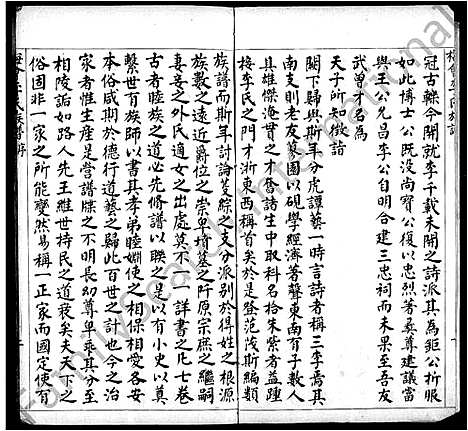 冠古轢今開就李千載未開之詩派其為鉅公折服
如此博士公既没尚寶公復以忠烈著桑尊建議當
與王公允昌李公自明合建三忠祠而未果至吾友
武曾才名為
天子所知徵詣
闕下歸與斯年分虎譚藝一時言詩者稱三李焉其
南支則老友莫園以硯學經濟著聲東南有子數人
具雄傑淹貫之才奮諸生中取科名拾朱紫者益踵
接李氏之門才浙東西稱首矣於是登范陵斯編類
族譜而斯年討論芟綜之支分派别於得姓之根源
族數之遠近爵位之崇卑墳墓之阡原宗庶之繼嗣
妻妾之外氏適女之出處莫不一一詳書之凡七卷
古者睦族之道必先脩譜以聯之是以有小史以奠
繫世百族師以書其孝弟睦婣使之相保相愛各安
本俗咸期於德行道藝之歸此百世之計也今之治
家者惟生産是營譜牒之不明長幼尊卑乘其分至
相陵詬如路人先王維世持民之道衰矣夫天下之
俗固非一家之所能變然易稱一正家而國定使有
FamilySearch International